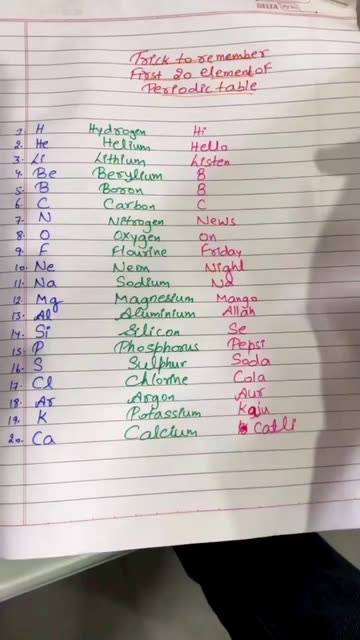 DELTA
Trick to remember
First 20 element of
Periodic table
1. H Hydrogen Hi
2. He Helium Hello
3. Li Lithium Listen
4. Be Berylium B
5. B Boron B
6. C Carbon C
7. N Nitrogen News
8. O Oxygen On
9. F Flourine Friday
10. Ne Neon Night
11. Na Sodium Na
12. Mg Magnesium Mango
13. Al Aluminium Allah
14. Si Silicon Se
15. P Phosphorus Pepsi
16. S Sulphur Soda
17. Cl Chlorine Cola
18. Ar Argon Aur
19. K Potassium Kaju
20. Ca Calcium Catli